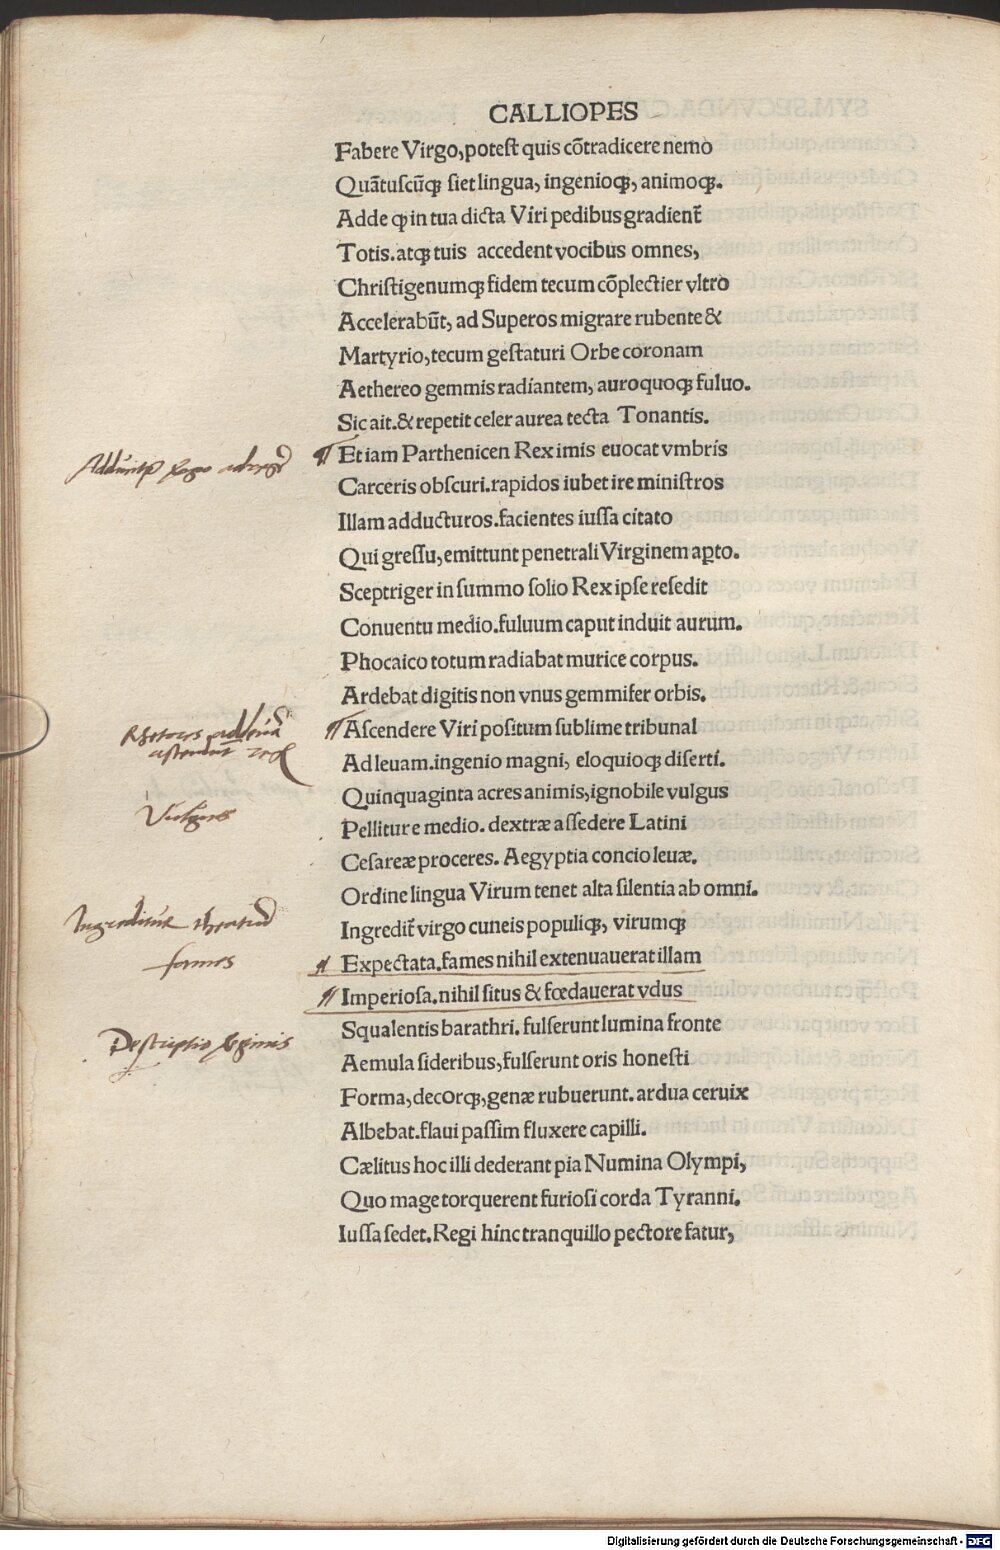 CALLIOPES
Fabere Virgo,potest quis cōtradicere nemo
Quātuscūqꝫ siet lingua, ingenioqꝫ, animoqꝫ.
Adde ꝙ in tua dicta Viri pedibus gradient̄
Totis.atqꝫ tuis accedent vocibus omnes,
Christigenumqꝫ fidem tecum cōplectier vltro
Accelerabūt, ad Superos migrare rubente &
Martyrio,tecum gestaturi Orbe coronam
Aethereo gemmis radíantem, auroquoqꝫ fuluo.
Sic ait.& repetit celer aurea tecta Tonantis.
¶ Etiam Parthenicen Rex imis euocat vmbrís
Carceris obscuri.rapidos iubet ire ministros
Illam adducturos.facientes iussa citato
Qui gressu,emittunt penetrali Virginem aꝑto.
Sceptriger in summo solio Rex ipse resedit
Conuentu medio.fuluum caput induit aurum.
Phocaico totum radiabat murice corpus.
Ardebat digitis non vnus gemmifer orbis.
¶ Ascendere Viri positum sublime tribunal
Ad leuam.ingenio magni, eloquioqꝫ diserti.
Quinquaginta acres animis,ignobile vulgus
Vulgus
Pellitur e medio. dextræ assedere Latini
Cesareæ proceres. Aegyptia concio leuæ.
Ordine lingua Virum tenet alta silentia ab omni.
Ingredit̄ virgo cuneis populiqꝫ, virumqꝫ
Ingreditur theatrū
fames
¶ Expectata.fames nihil extenuauerat illam
¶ Imperiosa.nihil situs & fœdauerat vdus
Squalentis barathri. fulserunt lumina fronte
Descriptio
Aemula sideribus,fulserunt oris honesti
Forma,decorqꝫ,genæ rubuerunt.ardua ceruix
Albebat.flaui passim fluxere capilli.
Cælitus hoc illi dederant pia Numina Olympi,
Quo mage torquerent furiosi corda Tyranni.
Iussa sedet.Regi hínc tranquillo pectore fatur,
Digitalisierung gefördert durch die Deutsche Forschungsgemeinschaft - DFG